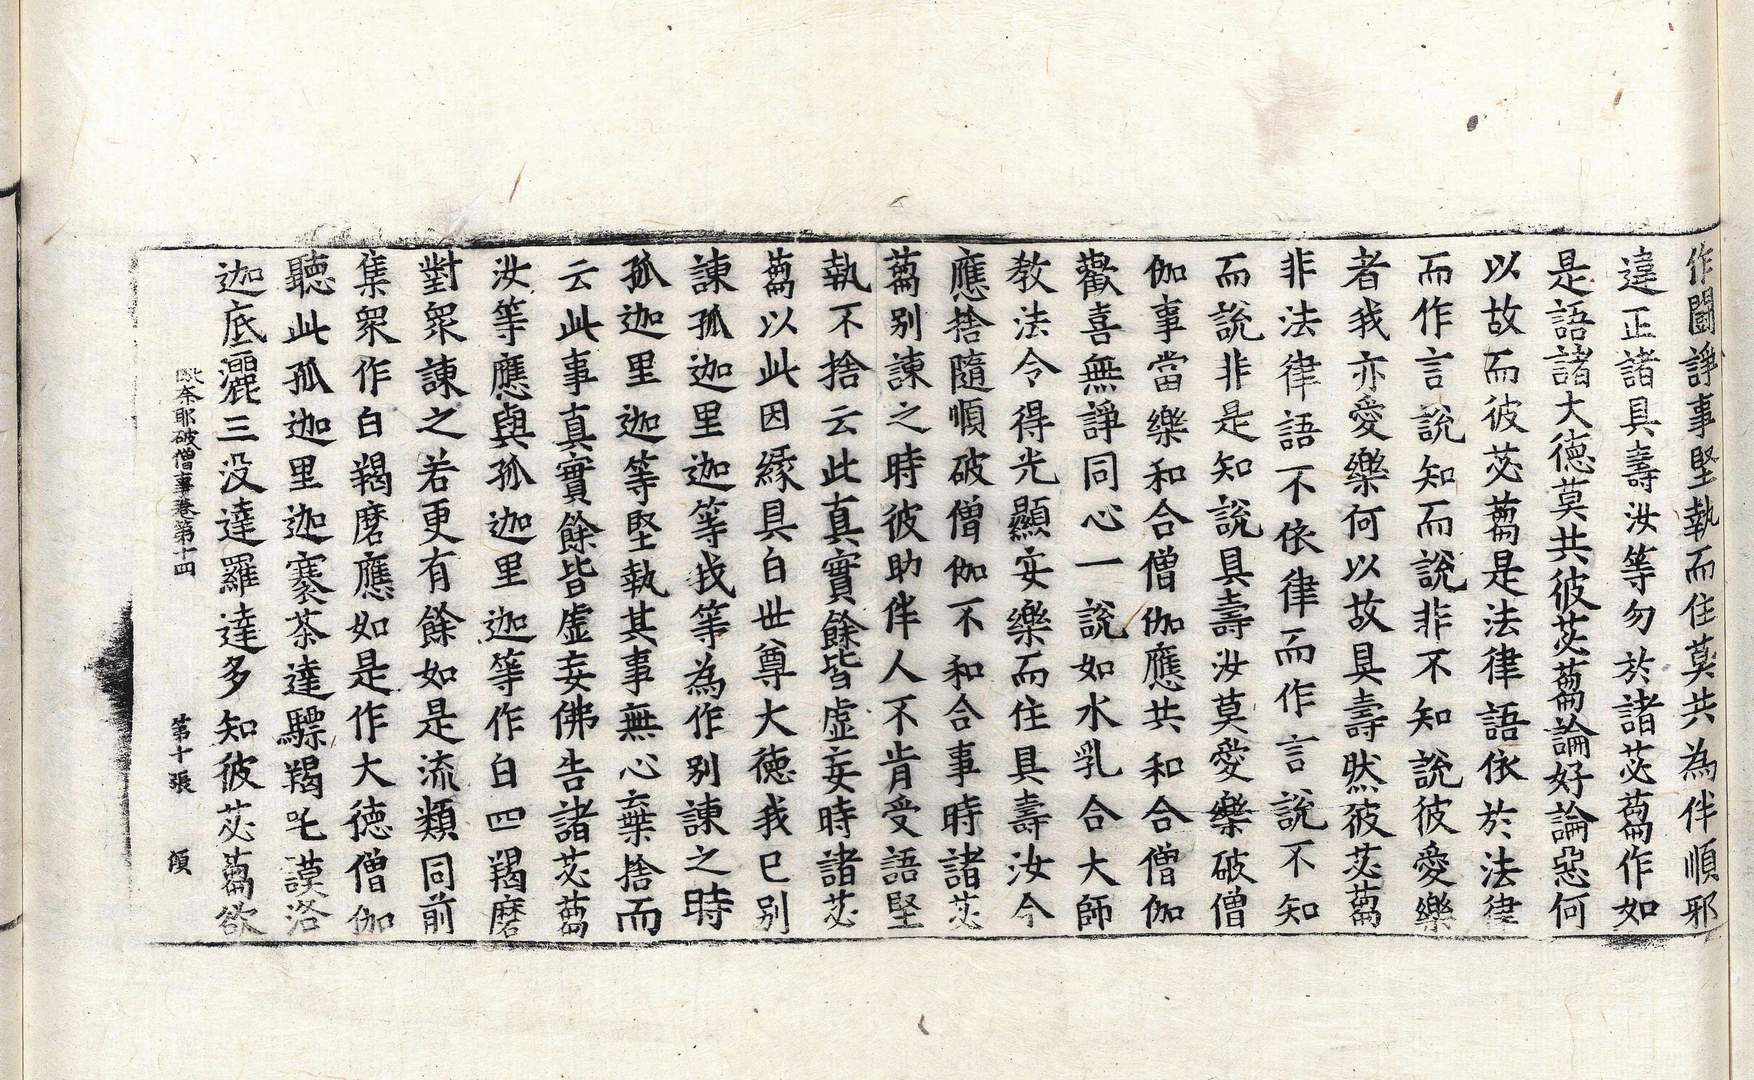 作鬪諍事堅執而住莫共為伴順邪
違正諸具壽汝等勿於諸苾蒭作如
是語諸大德莫共彼苾蒭論好論惡何
以故而彼苾蒭是法律語依於法律
而作言說知而說非不知說彼愛樂
者我亦愛樂何以故具壽然彼苾蒭
非法律語不依律而作言說不知
而說非是知說具壽汝莫愛樂破僧
伽事當樂和合僧伽應共和合僧伽
歡喜無諍同心一說如水乳合大師
教法令得光顯安樂而住具壽汝今
應捨隨順破僧伽不和合事時諸苾
蒭別諫之時彼助伴人不肯受語堅
執不捨云此真實餘皆虛妄時諸苾
蒭以此因緣具白世尊大德我已別
諫孤迦里迦等我等為作別諫之時
孤迦里迦等堅執其事無心棄捨而
云此事真實餘皆虛妄佛告諸苾蒭
汝等應與孤迦里迦等作白四羯磨
對眾諫之若更有餘如是流類同前
集眾作白羯磨應如是作大德僧伽
聽此孤迦里迦褰荼達驃羯吒謨洛
迦底灑三没達羅達多知彼苾蒭欲
奈耶破僧事卷第十四 第十張 頌